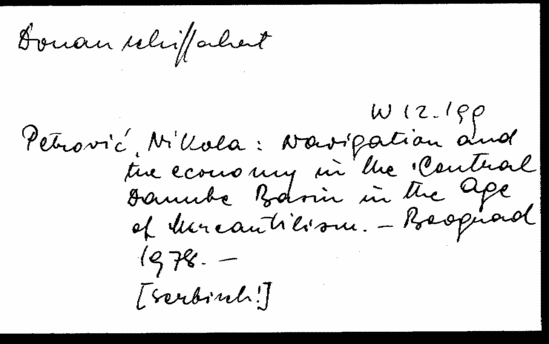 Donauschiffahrt
W 12.199
Petrović, Nikola: Navigation and
the economy in the Central
Danube Basin in the Age
of Mercantilism. – Beograd
1978. –
[serbisch!]